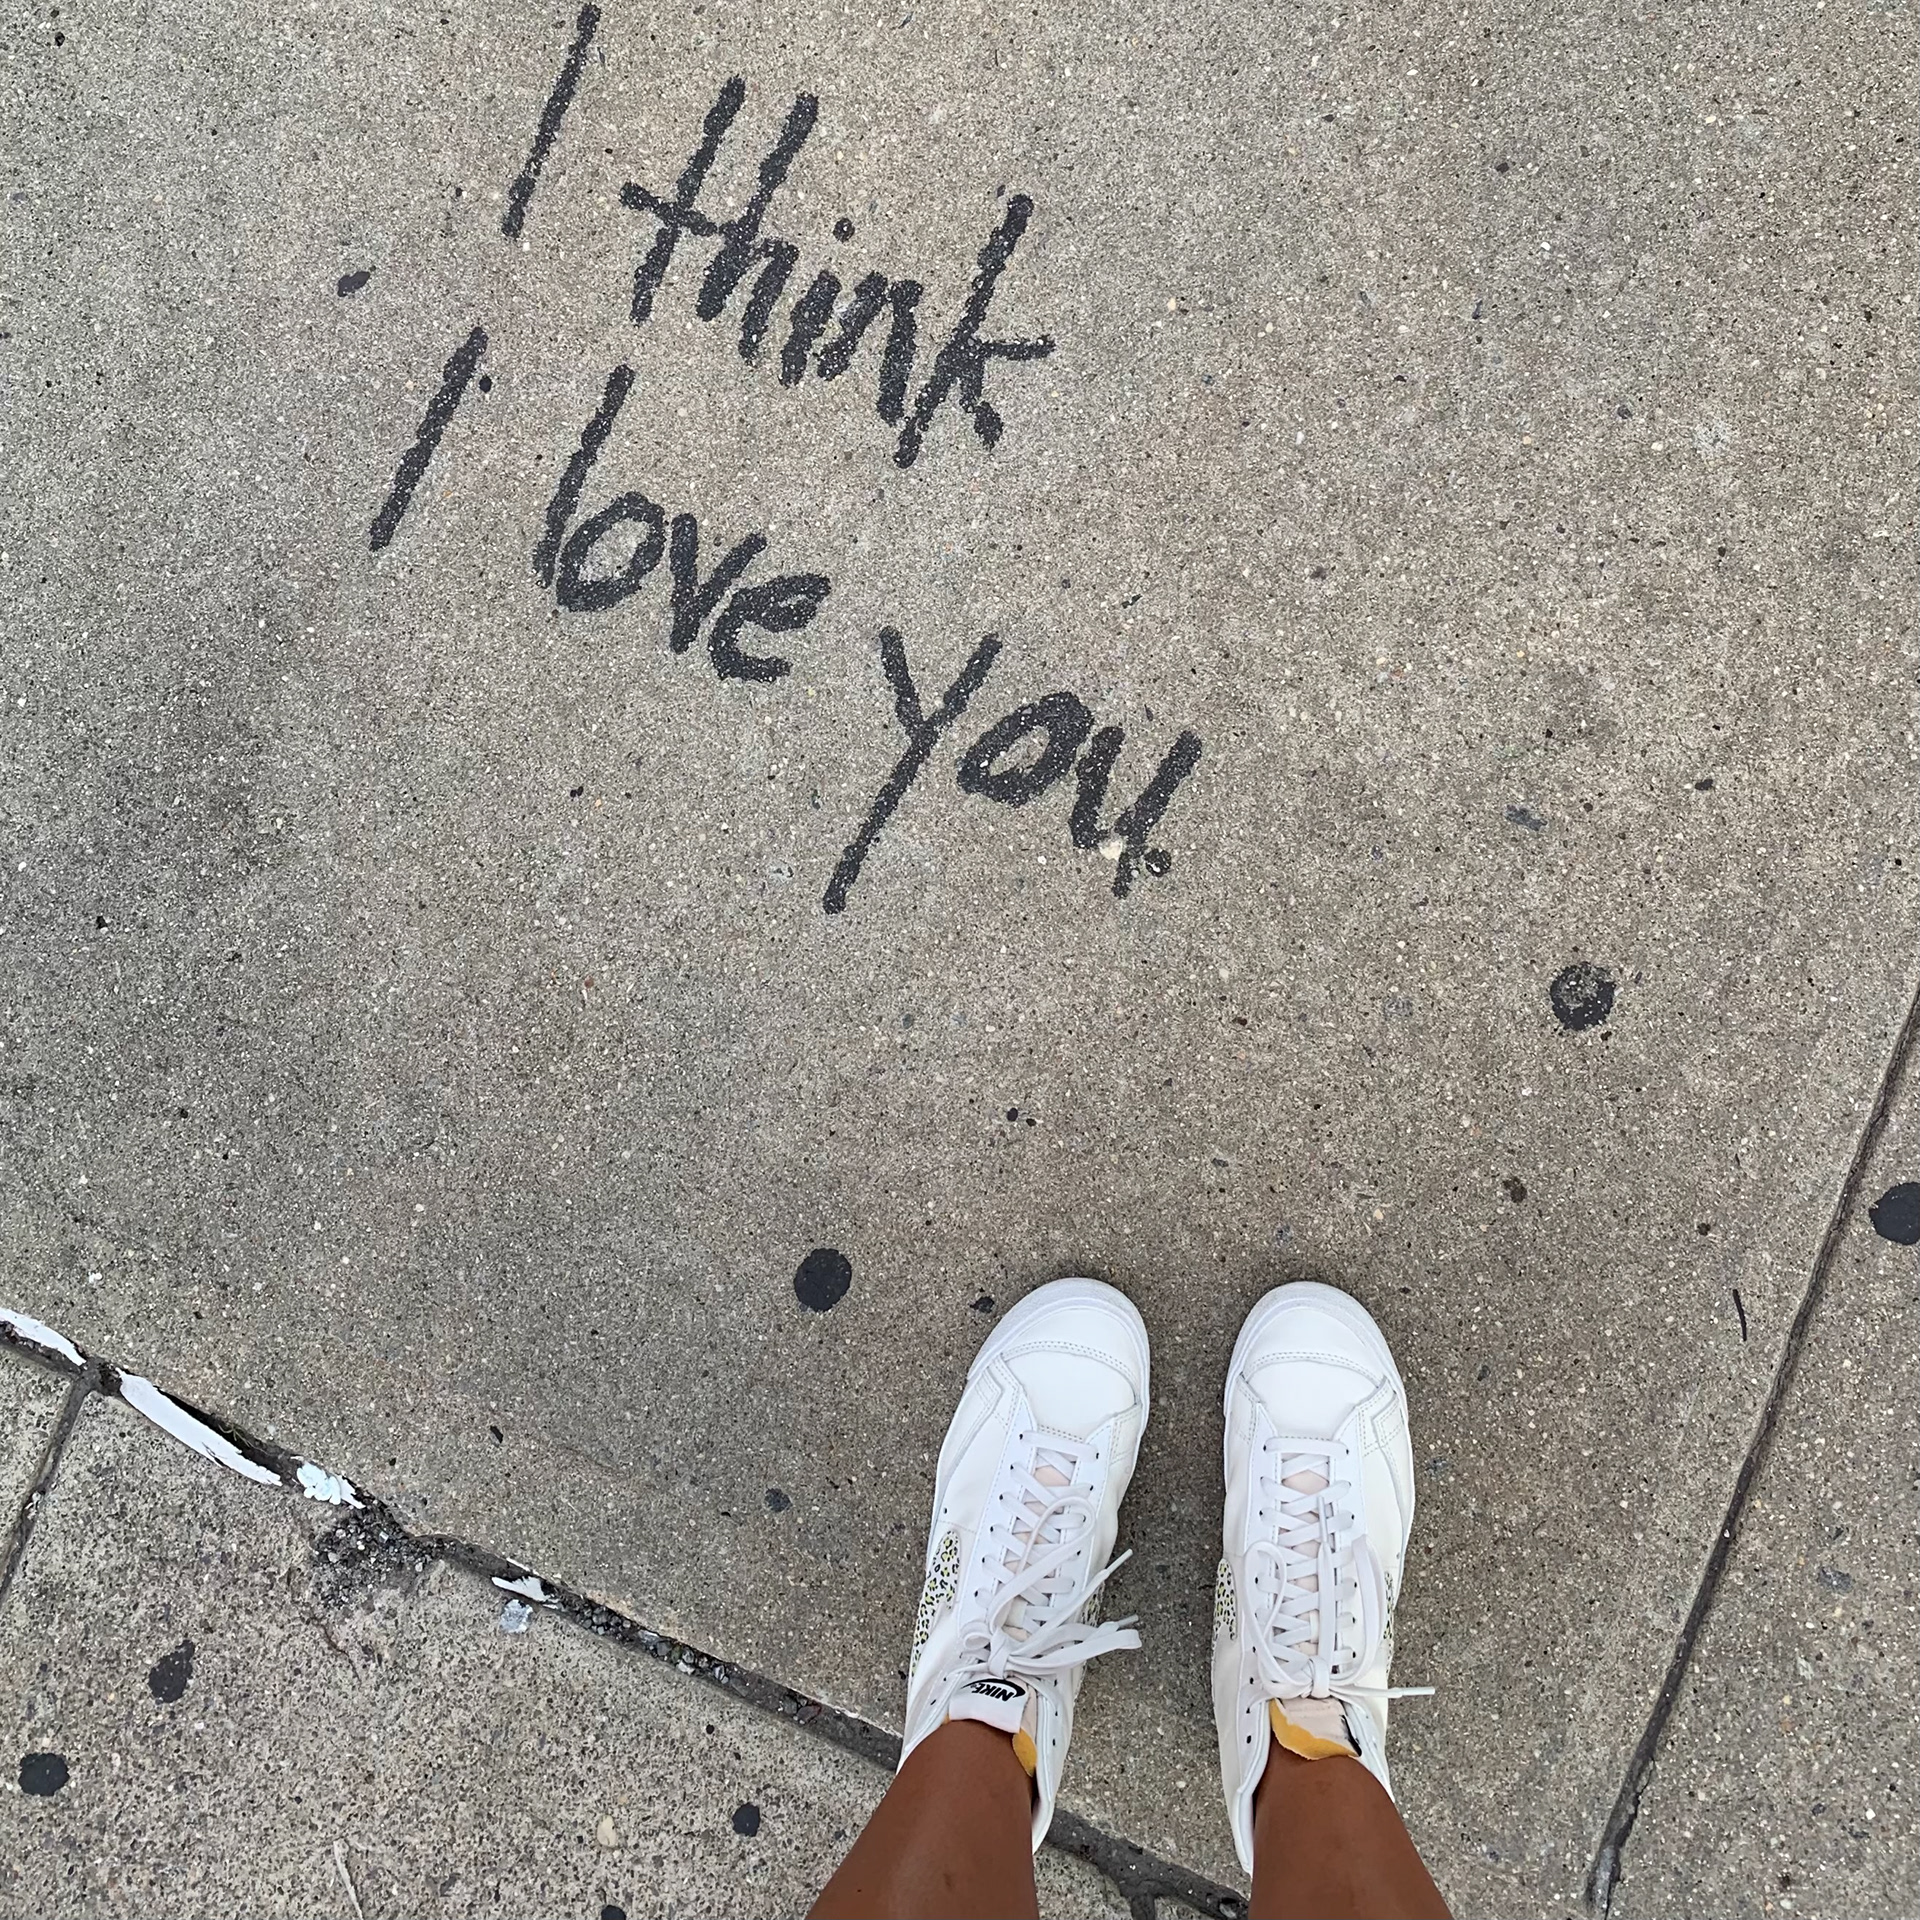 I think
I love you.
NIKE